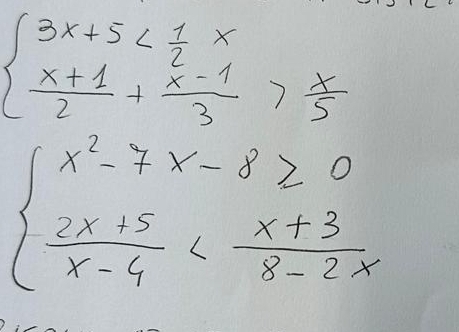 3x+5 < 1/2 x
(x+1)/2 + (x-1)/3 > x/5
x² - 7x - 8 ≥ 0
(2x+5)/(x-4) < (x+3)/(8-2x)